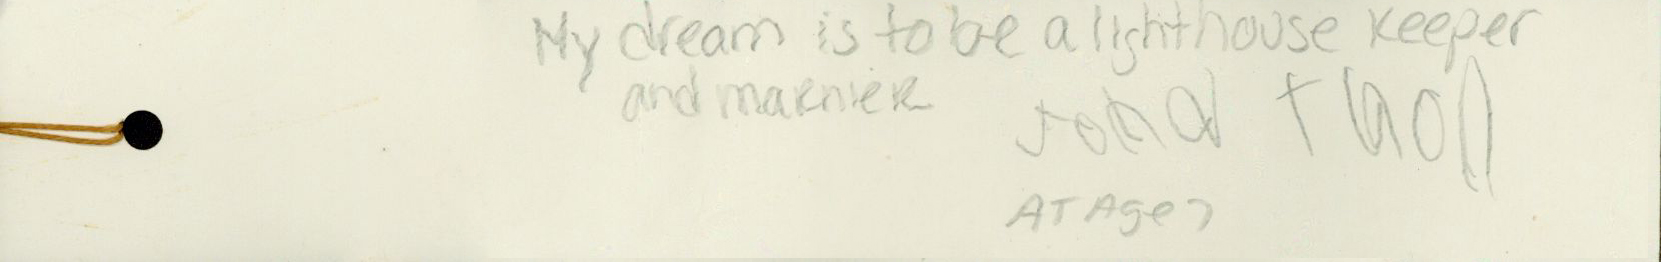 My dream is to be a lighthouse keeper
and marnier
AT Age 7